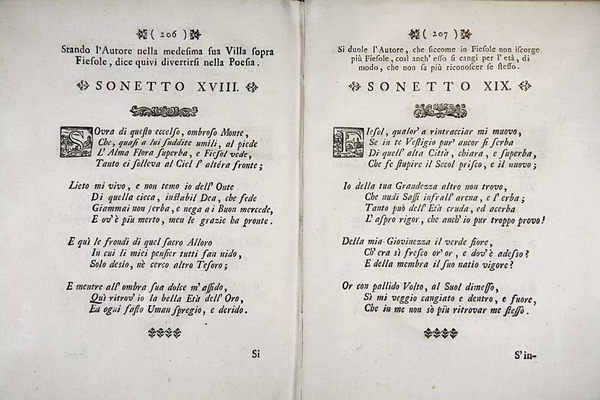 ( 206 )
Stando l'Autore nella medesima sua Villa sopra
Fiesole, dice quivi divertirsi nella Poesia.
SONETTO XVIII.
SOvra di questo eccelso, ombroso Monte,
Che, quasi a lui suddite umili, al piede
L'Alma Flora superba, e Fiesol vede,
Tanto ei solleva al Ciel l'altéra fronte;
Lieto mi vivo, e non temo io dell'Onte
Di quella cieca, instabil Dea, che sede
Giammai non serba, e nega a i Buon mercede,
E ov'è più merto, men le grazie ha pronte.
E quì le frondi di quel sacro Alloro
In cui li miei pensier tutti fan nido,
Solo desio, nè cerco altro Tesoro;
E mentre all'ombra sua dolce m'assido,
Quì ritrov'io la bella Età dell'Oro,
Ed ogni fasto Uman spregio, e derido.
Sì
( 207 )
Si duole l'Autore, che siccome in Fiesole non iscorge
più Fiesole, così anch'esso si cangi per l'età, di
modo, che non sa più riconoscer se stesso.
SONETTO XIX.
FIesol, qualor'a rintracciar mi muovo,
Se in te Vestigio pur'ancor si serba
Di quell'alta Città, chiara, e superba,
Che fe stupire il Secol prisco, e il nuovo;
Io della tua Grandezza altro non trovo,
Che nudi Sassi infrall'arena, e l'erba;
Tanto può dell'Età cruda, ed acerba
L'aspro rigor, che anch'io pur troppo provo!
Della mia Giovinezza il verde fiore,
Ch'era sì fresco or'or, e dov'è adesso?
E della membra il suo natio vigore?
Or con pallido Volto, al Suol dimesso,
Sì mi veggio cangiato e dentro, e fuore,
Che in me non sò più ritrovar me stesso.
S'in-